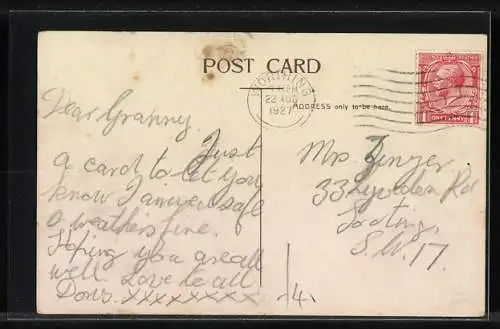 POST CARD
WORTHING
22 AUG
1927
ADDRESS only to be here.
Dear Granny
Just
a card to let you
know I arrived safe
& weathers fine.
Hoping you are all
well. Love to all
Doris. xxxxxxxxx
Mrs
33 Leyden Rd
Tooting.
S.W. 17.